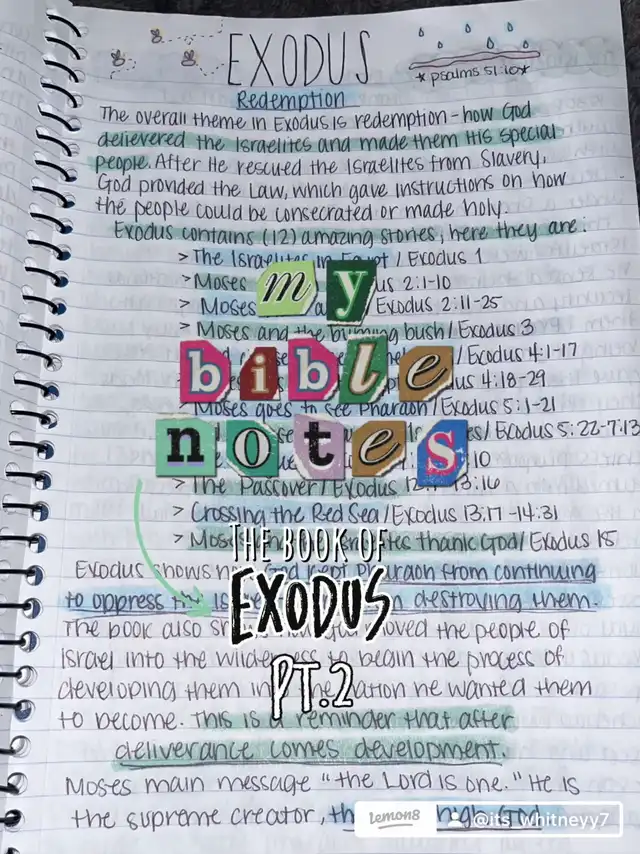 EXODUS
*psalms 51:10*
Redemption
The overall theme in Exodus is redemption - how God
delievered the Israelites and made them His special
people. After He rescued the Israelites from Slavery,
God provided the Law, which gave instructions on how
the people could be consecrated or made holy.
Exodus contains (12) amazing stories, here they are:
> The Israelites in Egypt / Exodus 1
> Moses 2:1-10
> Moses Exodus 2:11-25
> Moses and the burning bush / Exodus 3
/ Exodus 4:1-17
4:18-29
> Moses goes to see Pharaoh / Exodus 5:1-21
/ Exodus 5:22-7:13
10
> The Passover / Exodus 13:16
> Crossing the Red Sea / Exodus 13:17-14:31
> Moses thank God / Exodus 15
my
bible
notes
THE BOOK OF
EXODUS
PT.2
Exodus shows God kept Pharaoh from continuing
to oppress destroying them.
The book also moved the people of
Israel into the wilderness to begin the process of
developing them in the nation he wanted them
to become. This is a reminder that after
deliverance comes development.
Moses main message "the Lord is one." He is
the supreme creator, high God
lemon8
@its_whitneyy7